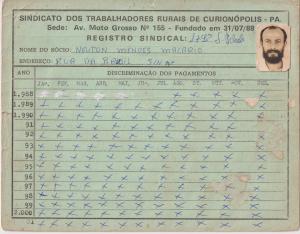 SINDICATO DOS TRABALHADORES RURAIS DE CURIONÓPOLIS - PA.
Sede: Av. Mato Grosso Nº 155 - Fundado em 31/07/88
REGISTRO SINDICAL:
NOME DO SÓCIO: NELTON MENDES
ENDEREÇO: RUA DA BRASIL S/Nº
ANO DISCRIMINAÇÃO DOS PAGAMENTOS
JAN. FEV. MAR. ABR. MAI. JUN. JUL. AGO. SET. OUT. NOV. DEZ.
1.988
1.989
1.990
91
92
93
94
95
96
97
98
99
2.000